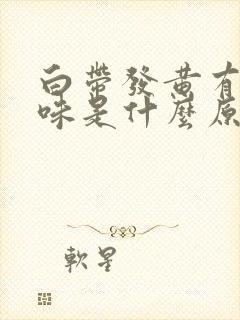 白帶發黃有
味是什麼原
軟星